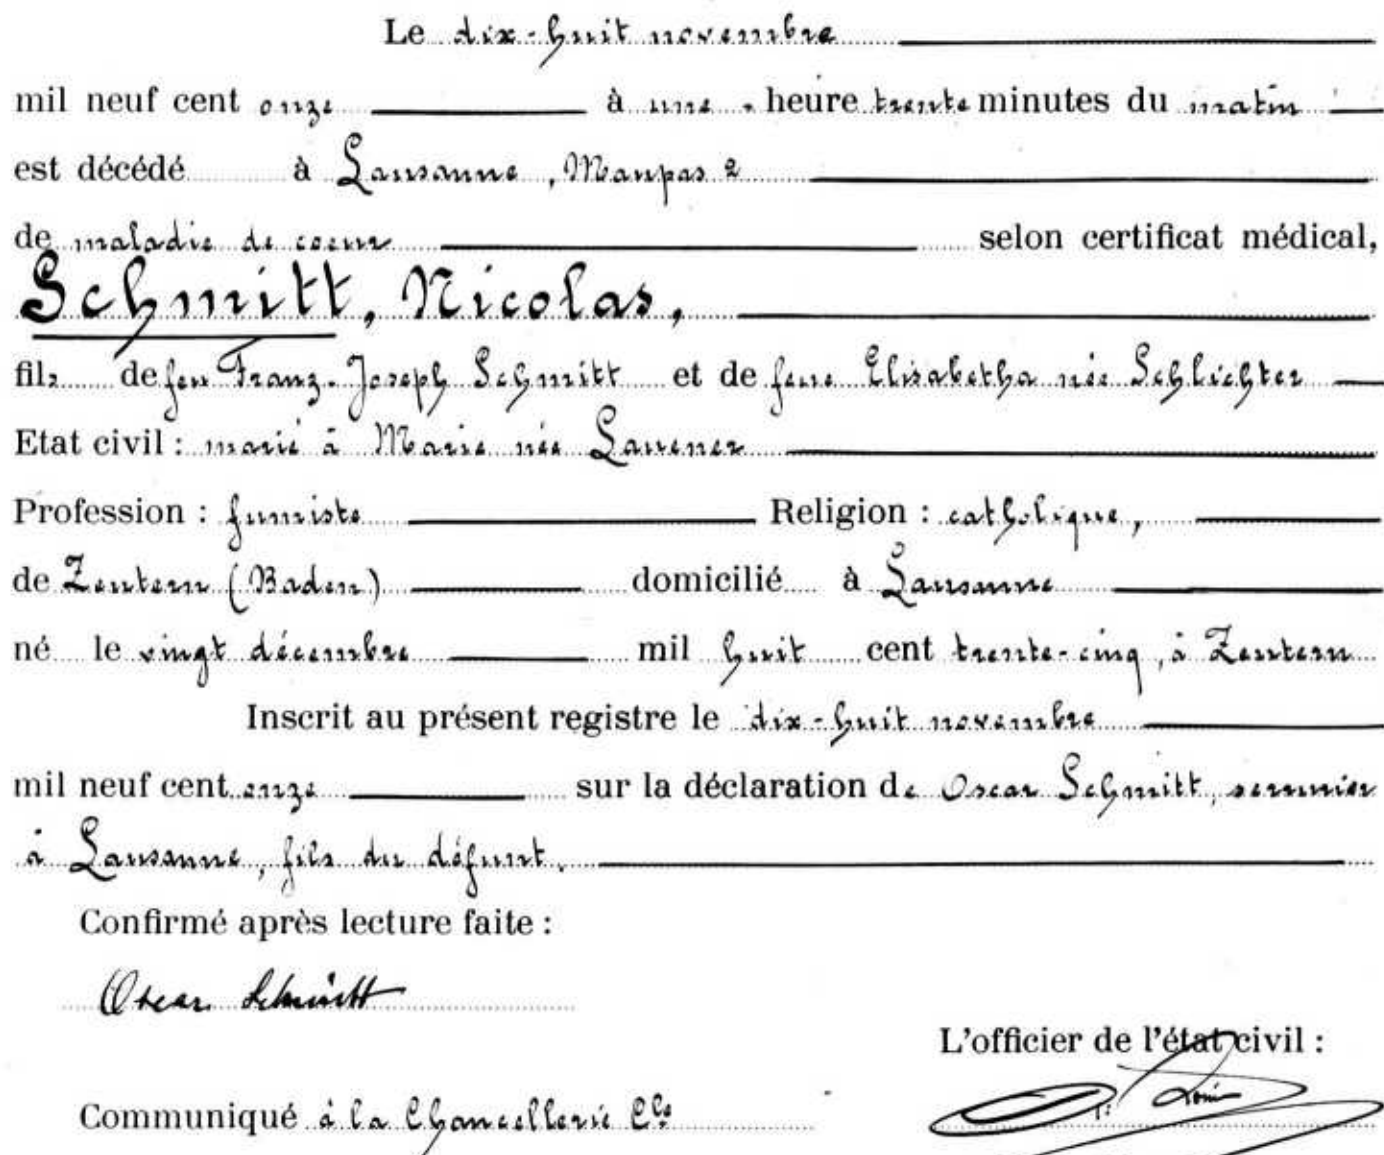 Le dix-huit novembre
mil neuf cent onze à une heure trente minutes du matin
est décédé à Lausanne, Maupas 2
de maladie de coeur selon certificat médical,
Schmitt, Nicolas,
fils de feu Franz-Joseph Schmitt et de feue Elisabetha née Schlichter
Etat civil : marié à Marie née Lauener
Profession : fumiste Religion : catholique,
de Zeutern (Baden) domicilié à Lausanne
né le vingt décembre mil huit cent trente-cinq, à Zeutern
Inscrit au présent registre le dix-huit novembre
mil neuf cent onze sur la déclaration de Oscar Schmitt, serrurier
à Lausanne, fils du défunt.
Confirmé après lecture faite :
Oscar Schmitt
L'officier de l'état civil :
Communiqué à la Chancellerie Cle